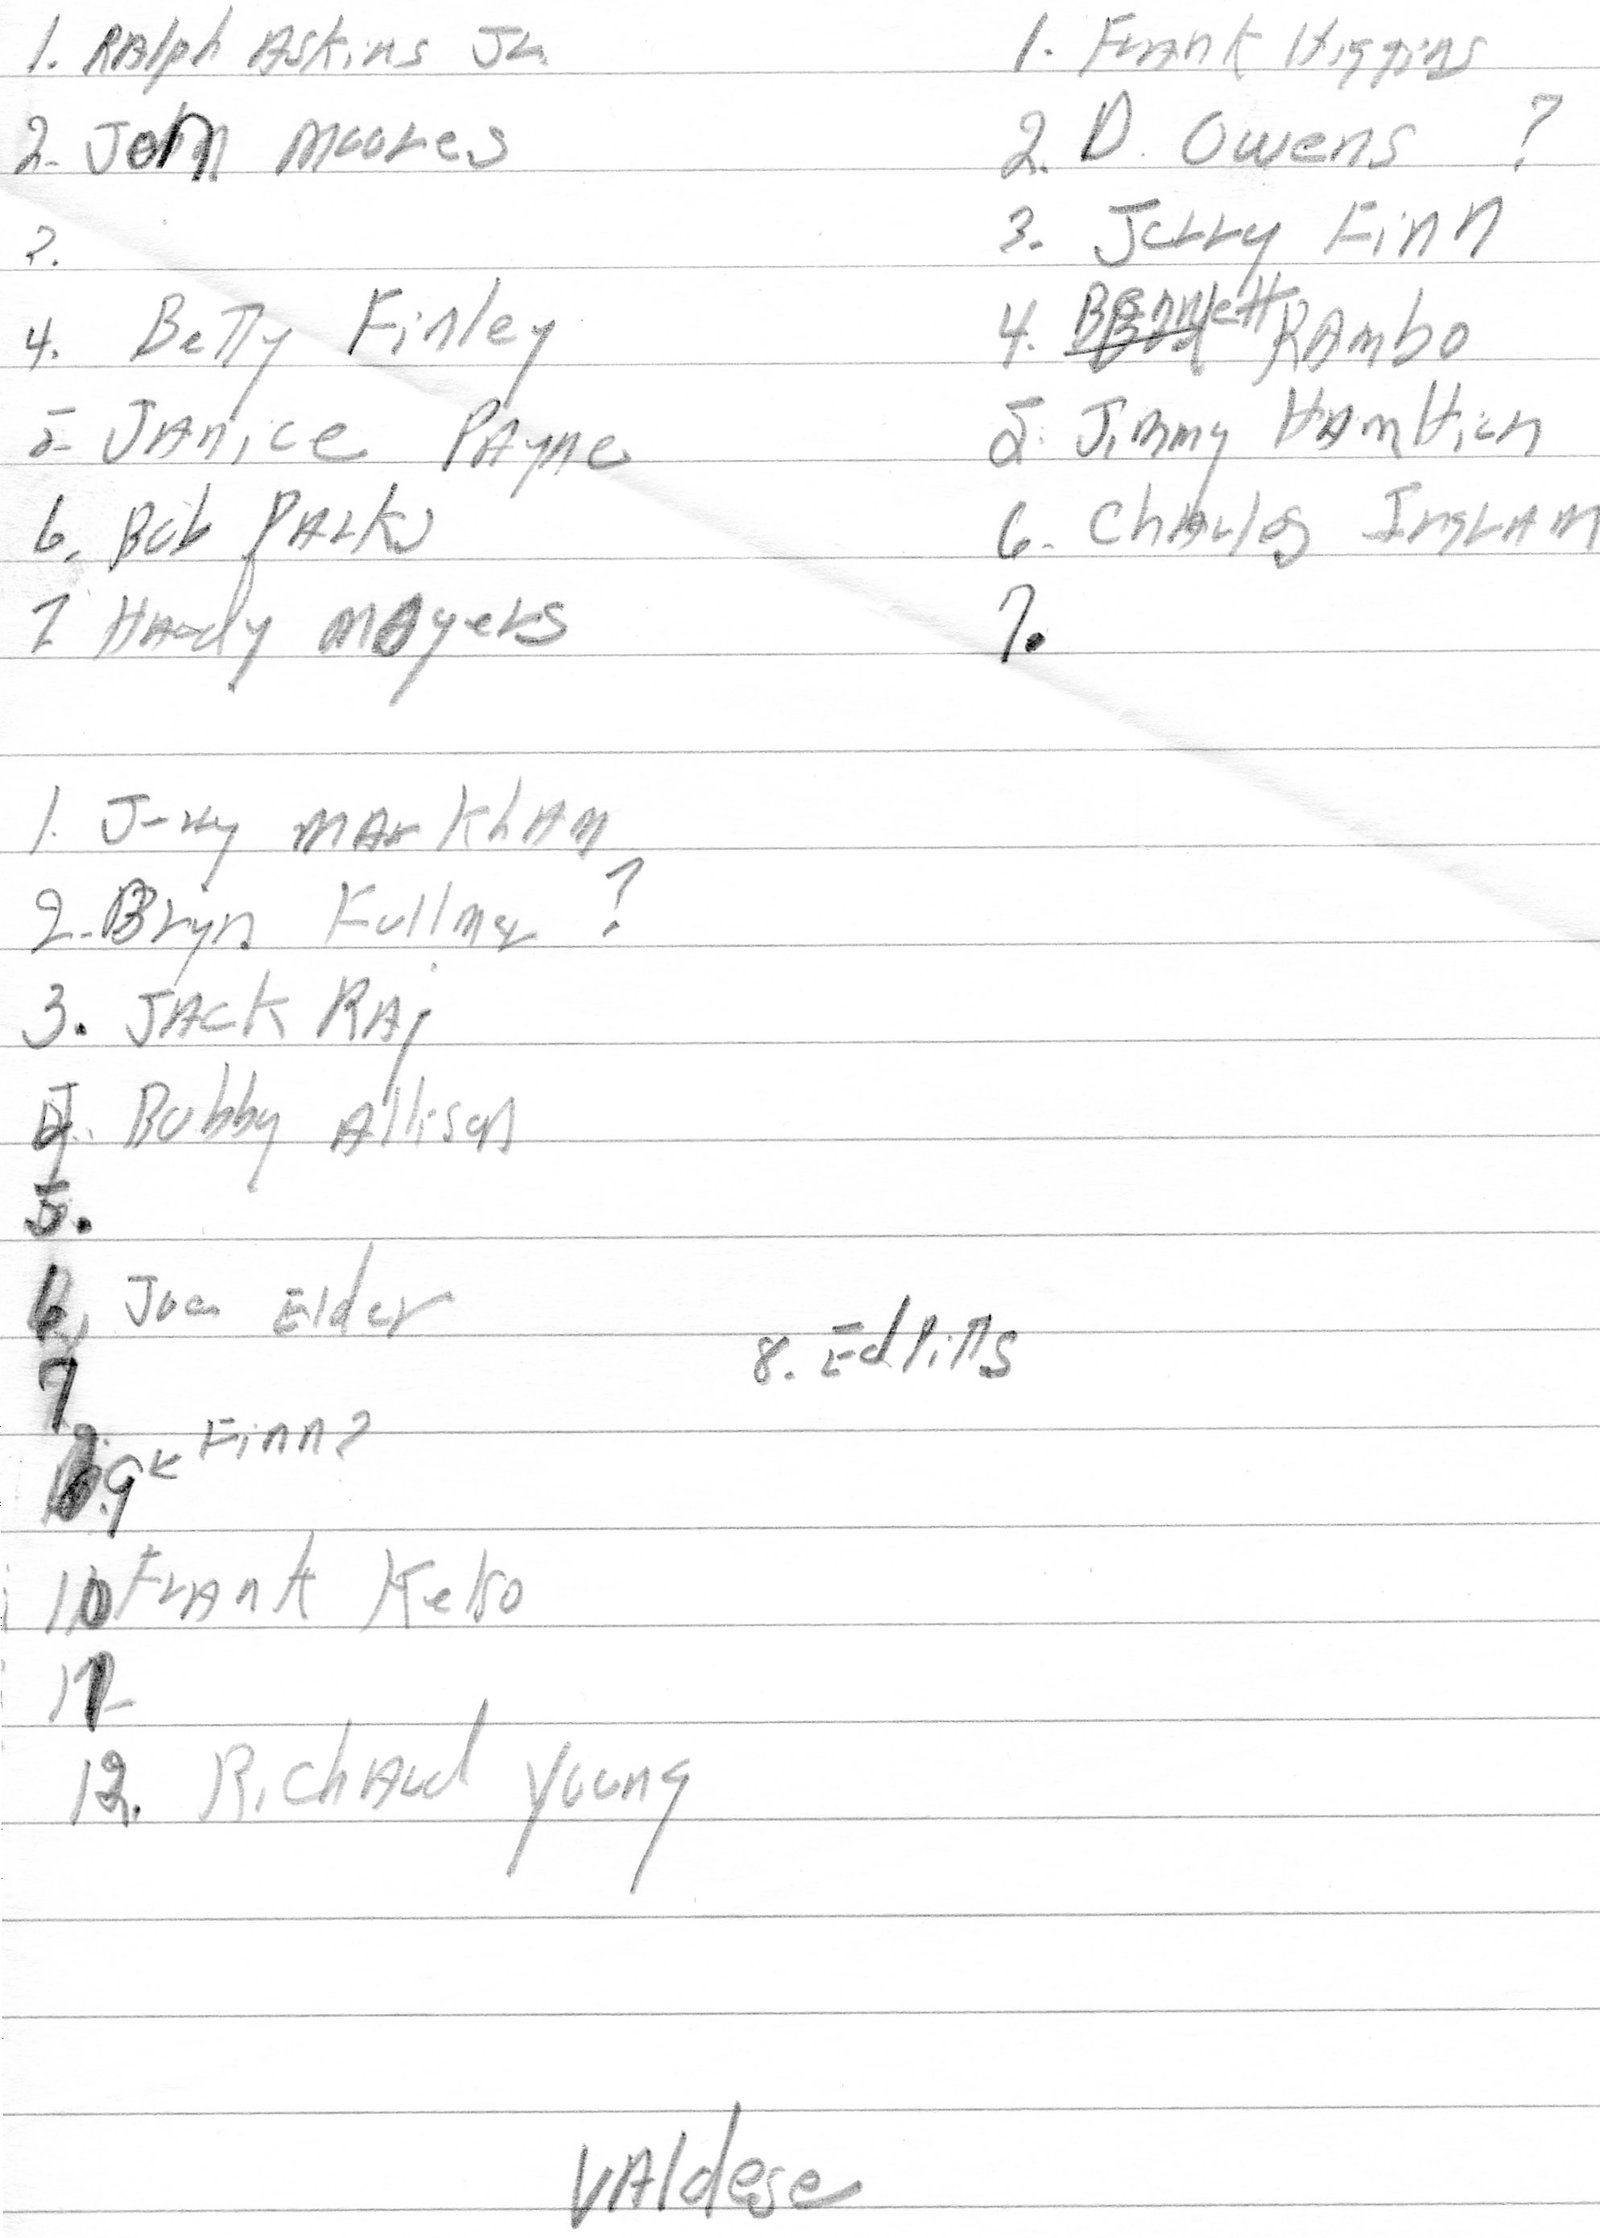 1. Ralph Askins Jr.
2. John Moores
3.
4. Betty Finley
5 Janice Payne
6. Bob Parks
7 Hardy Mayers
1. Frank Higgins
2. D. Owens ?
3. Jerry Finn
4. Bennett Rambo
5. Jimmy Hamltion
6. Charles Ingram
7.
1. Jerry Markham
2. Bryn Fullmer ?
3. Jack Ray
4. Bobby Allison
5.
6. Joe Elder
7
8. Ed Pitts
9 Finn?
10 Frank Kelso
11
12. Richard Young
Valdese